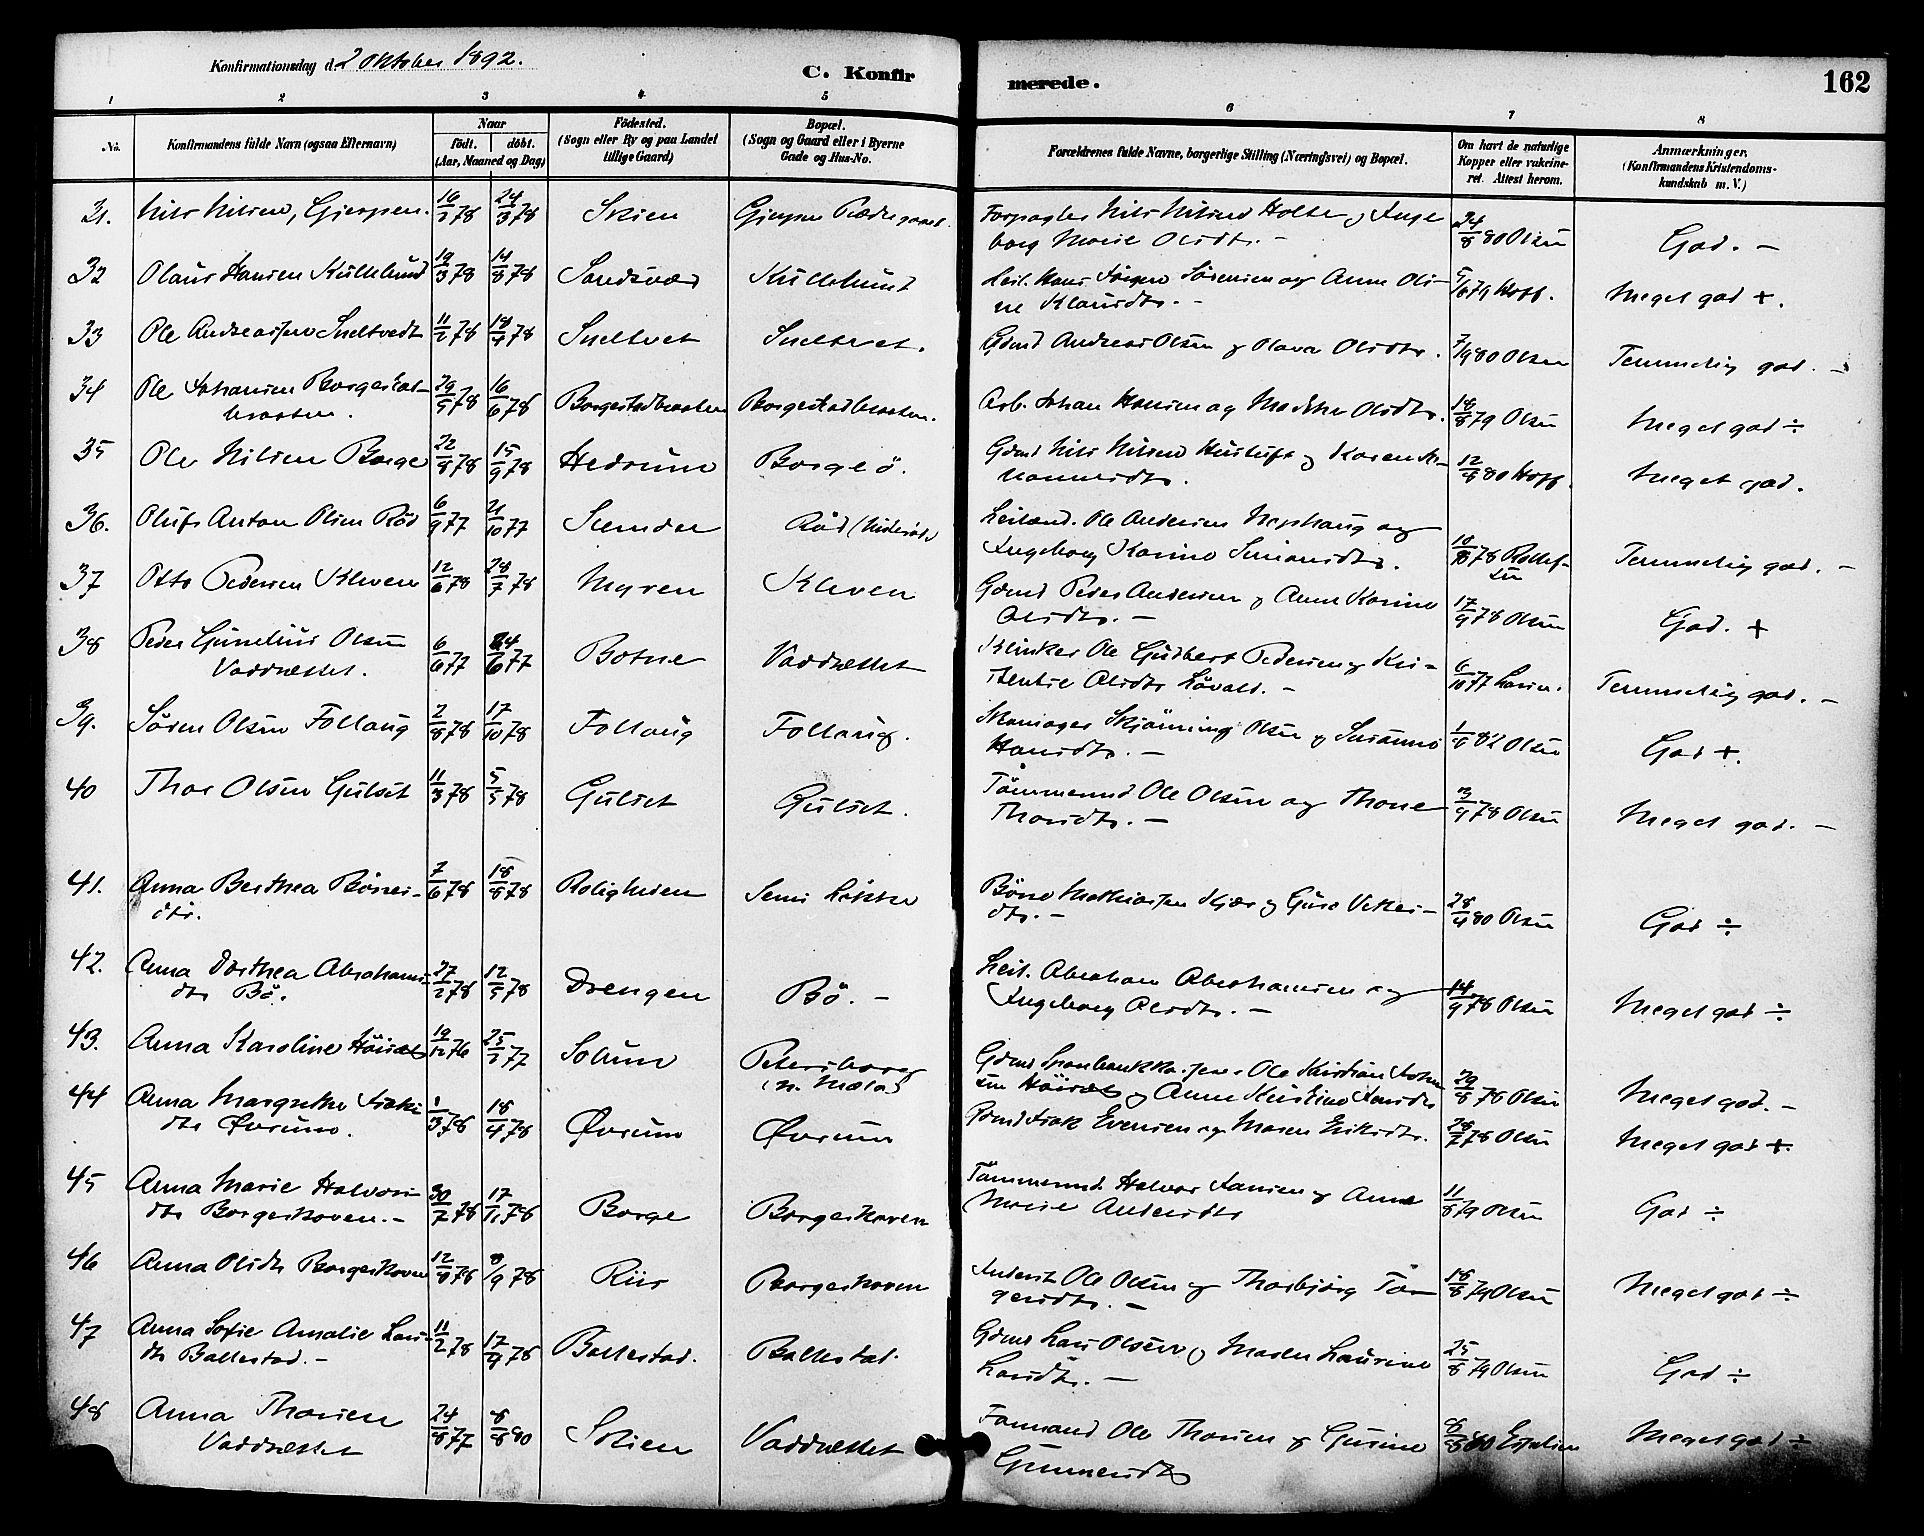 Konfirmationsdag d. 2 Oktober 1892.
C. Konfirmerede.
162
1 2 3 4 5 6 7 8
No.
Konfirmandens fulde Navn (ogsaa Efternavn)
Naar
födt. döbt.
(Aar, Maaned og Dag)
Födested.
(Sogn eller By og paa Landet
tillige Gaard)
Bopæl.
(Sogn og Gaard eller i Byerne
Gade og Hus-No.
Forældrenes fulde Navne, borgerlige Stilling (Næringsvei) og Bopæl.
Om havt de naturlige
Kopper eller vakcine-
ret. Attest herom.
Anmærkninger.
(Konfirmandens Kristendoms-
kundskab m. V.)
31. Nils Nilsen, Gjerpen. 24/3 78 Skien Gjerpen Prestegaard. Forpagter Nils Nilsen Holte og Inge
borg Marie Olsdtr. – 24/8 80 Olsen God. –
32 Olaus Hansen Kultehund 19/3 78 14/8 78 Sandsvær Kultehund Leil. Hans Jörgen Sörensen og Anne Oli-
ne Klausdtr. – 79 Hoff. Meget god +.
33 Ole Andreassen Sneltvedt 11/2 78 14/4 78 Sneltvet Sneltvet. Gbmd Andreas Olsen og Olava Olsdtr. 7/9 80 Olsen Temmelig god. –
34 Ole Johansen Borgestad-
braaten. 29/5 78 16/6 78 Borgestadbraaten Borgestadbraaten. Arb. Johan Hansen og Marthe Olsdtr. 18/8 79 Olsen Meget god ÷
35 Ole Nilsen Borge 22/8 78 15/9 78 Hedrum Borgeö. Gbmd Nils Nilsen og Karen
12/8 80 Hoff. Meget god.
36. Oluf Anton Olsen Röd 6/9 77 21/10 77 Slemdal Röd Leilænd. Ole Andersen og
Ingeborg Karine Simonsdtr. 78 Rollef-
sen Temmelig god. –
37 Otto Pedersen Kleven 12/6 78 28/7 78 Myren Kleven Gbmd Peder Andersen og Anne Karine
Olsdtr. – 17/9 78 Olsen God. +
38 Peder Gunelius Olsen
Vaddrættet. 6/6 77 24/6 77 Botne Vaddrættet Ole Gudbert Pedersen og Kri-
Olsdtr Lövald. – 6/10 77 Larsen. Temmelig god. –
39. Sören Olsen Follaug 2/8 78 17/10 78 Follaug Follaug. Skomager Skjönning Olsen og Susanne
Hansdtr. – 82 Olsen God +.
40 Thor Olsen Gulset 11/3 78 5/5 78 Gulset Gulset. Tömmermd Ole Olsen og Thone
Thorsdtr. – 3/9 78 Olsen Meget god. –
41. Anna Berthea Börres-
dtr. 7/6 78 18/8 78 Roligheden Semi Lökka Börre Mathiassen Kjær og
dtr. – 28/4 80 Olsen God ÷
42. Anna Dorthea Abrahams-
dtr Bö. 27/2 78 12/5 78 Drengen Bö. – Leil. Abraham Abrahamsen og
Ingeborg Olsdtr. – 14/9 78 Olsen Meget god ÷
43. Anna Karoline 19/12 76 25/2 77 Solum Petersborg
(n. Mæla) Gbmd Ole Kristian
og Anne Kristine 29/8 78 Olsen Meget god. –
44 Anna Margrethe Isaks
dtr Övrum. 1/3 78 18/4 78 Övrum Övrum Gbmd Isak Evensen og Maren Eriksdtr. 28/7 78 Olsen Meget god +.
45 Anna Marie Halvors-
dtr Borgeskoven. – 30/7 78 17/11 78 Borge Borgeskoven Tömmermd. Halvor Jansen og Anne
Marie Andersdtr 11/8 79 Olsen God ÷
46 Anna Olsdtr Borgeskoven 12/8 78 8/9 78 Riis Borgeskoven Inderst Ole Olsen og Thorbjörg Tor-
gersdtr. – 18/8 79 Olsen Meget god ÷
47 Anna Sofie Amalie Lars-
dtr Ballestad. – 11/2 78 17/4 78 Ballestad. Ballestad. Gbmd Lars Olsen og Maren Laurine
Larsdtr. – 25/8 79 Olsen God ÷
48 Anna Thorsen
Vaddrættet 24/8 77 8/8 80 Skien Vaddrættet Formand Ole Thorsen og Gurine
Gunnersdtr 8/8 80 Meget god ÷